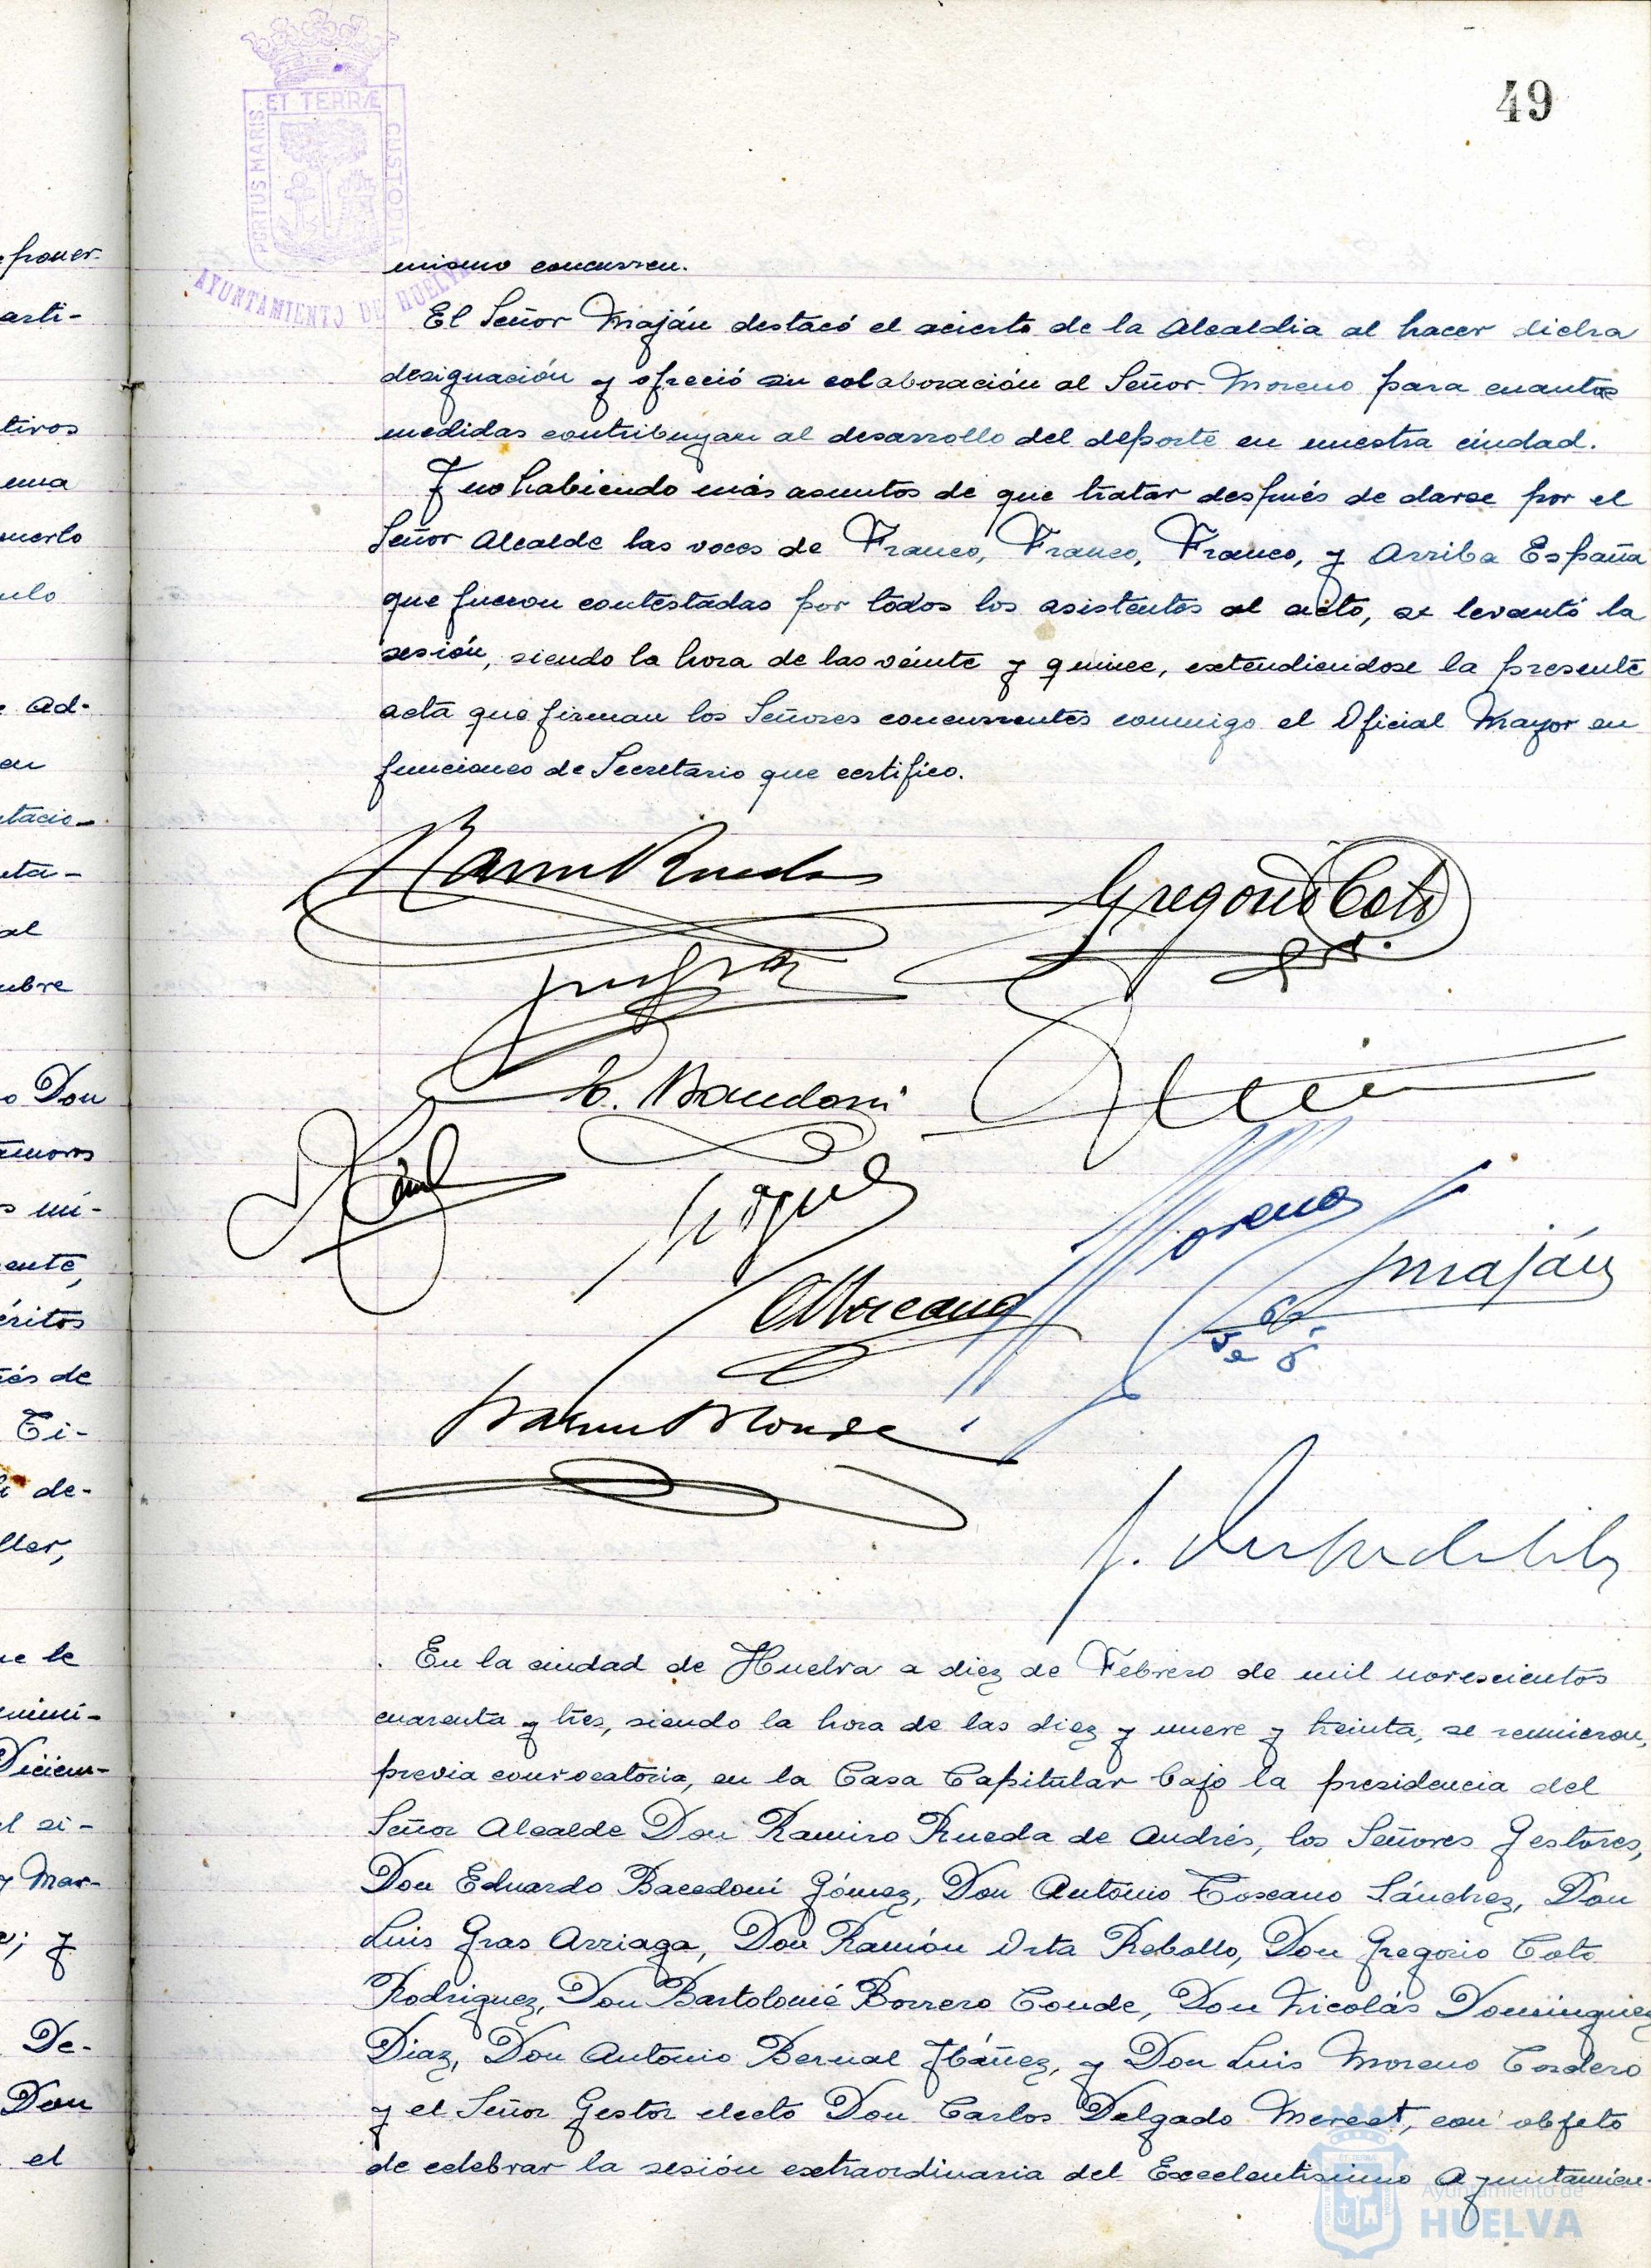 poner-
arti-
tivos
una
puerto
culo
e Ad-
en
tacio-
eta-
al
mbre
o Don
amoros
s mi-
ente,
éritos
és de
Ti-
de-
ller,
ue le
Diciem-
l si-
y Mar-
; y
De-
Don
el
PORTUS MARIS ET TERRÆ CUSTODIA
AYUNTAMIENTO DE HUELVA
49
mismo concurren.
El Señor Maján destacó el acierto de la Alcaldia al hacer dicha
designación y ofreció su colaboración al Señor Moreno para cuantas
medidas contribuyan al desarrollo del deporte en nuestra ciudad.
Y no habiendo más asuntos de que tratar después de darse por el
Señor Alcalde las voces de Franco, Franco, Franco, y Arriba España
que fueron contestadas por todos los asistentes al acto, se levantó la
sesión, siendo la hora de las veinte y quince, extendiendose la presente
acta que firman los Señores concurrentes conmigo el Oficial Mayor en
funciones de Secretario que certifico.
Ramiro Rueda
Gregorio Coto
E. Bacedoni
Moreno
Maján
A Toscano
. En la ciudad de Huelva a diez de Febrero de mil novescientos
cuarenta y tres, siendo la hora de las diez y nueve y treinta, se reunieron,
previa convocatoria, en la Casa Capitular bajo la presidencia del
Señor Alcalde Don Ramiro Rueda de Andrés, los Señores Gestores,
Don Eduardo Bacedoni Gómez, Don Antonio Toscano Sánchez, Don
Luis Gras Arriaga, Don Ramón Orta Rebollo, Don Gregorio Coto
Rodriguez, Don Bartolomé Borrero Conde, Don Nicolás Dominguez
Diaz, Don Antonio Bernal Ybáñez, y Don Luis Moreno Cordero
y el Señor Gestor electo Don Carlos Delgado Mercet, con objeto
de celebrar la sesión extraordinaria del Excelentisimo Ayuntamien-
Ayuntamiento de
HUELVA